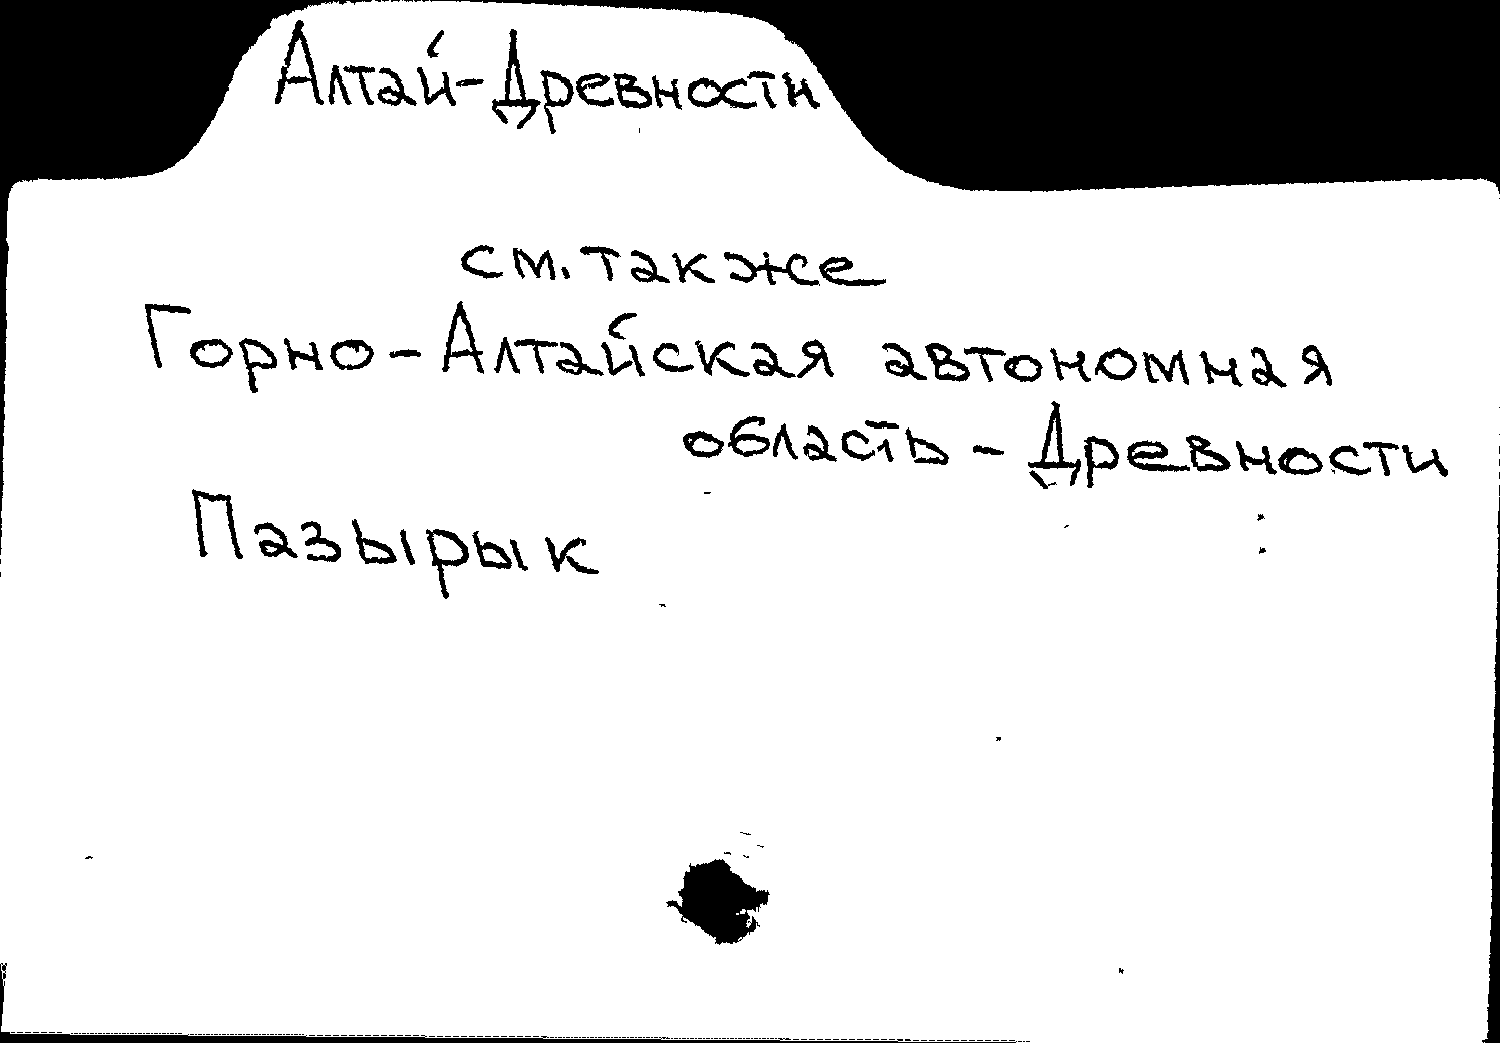 Алтай-Древности
см. также
Горно-Алтайская автономная
область - Древности
Пазырык